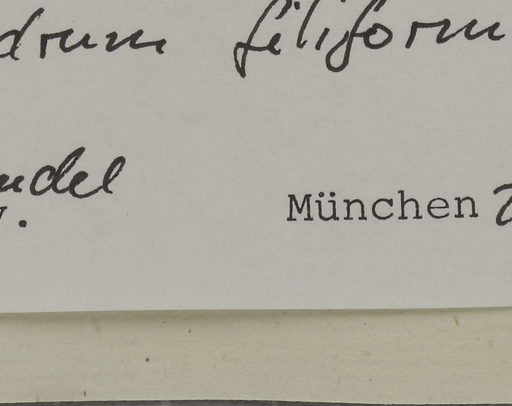 drum filiform
ndel
München